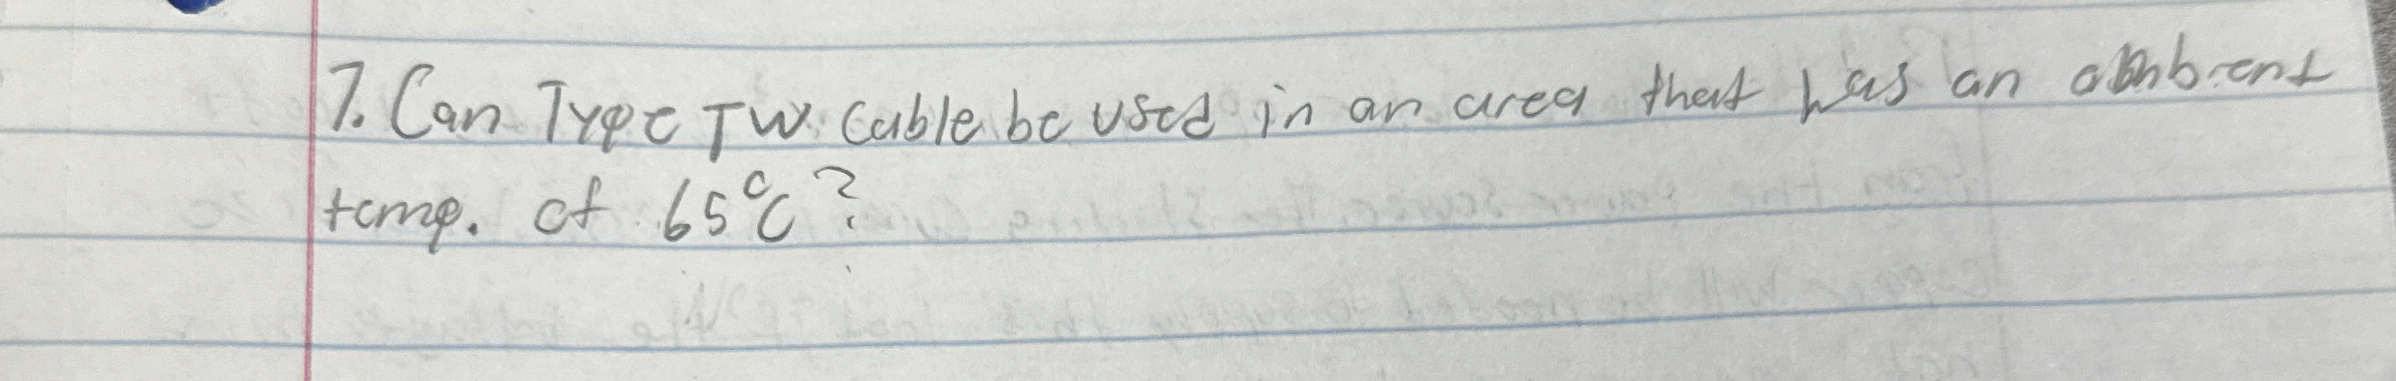 7. Can Type TW cable be used in an area that has an ambient
temp. of 65°C?